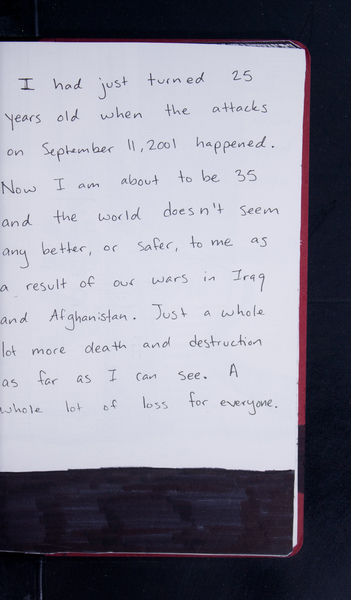 I had just turned 25
years old when the attacks
on September 11, 2001 happened.
Now I am about to be 35
and the world doesn't seem
any better, or safer, to me as
a result of our wars in Iraq
and Afghanistan. Just a whole
lot more death and destruction
as far as I can see. A
whole lot of loss for everyone.